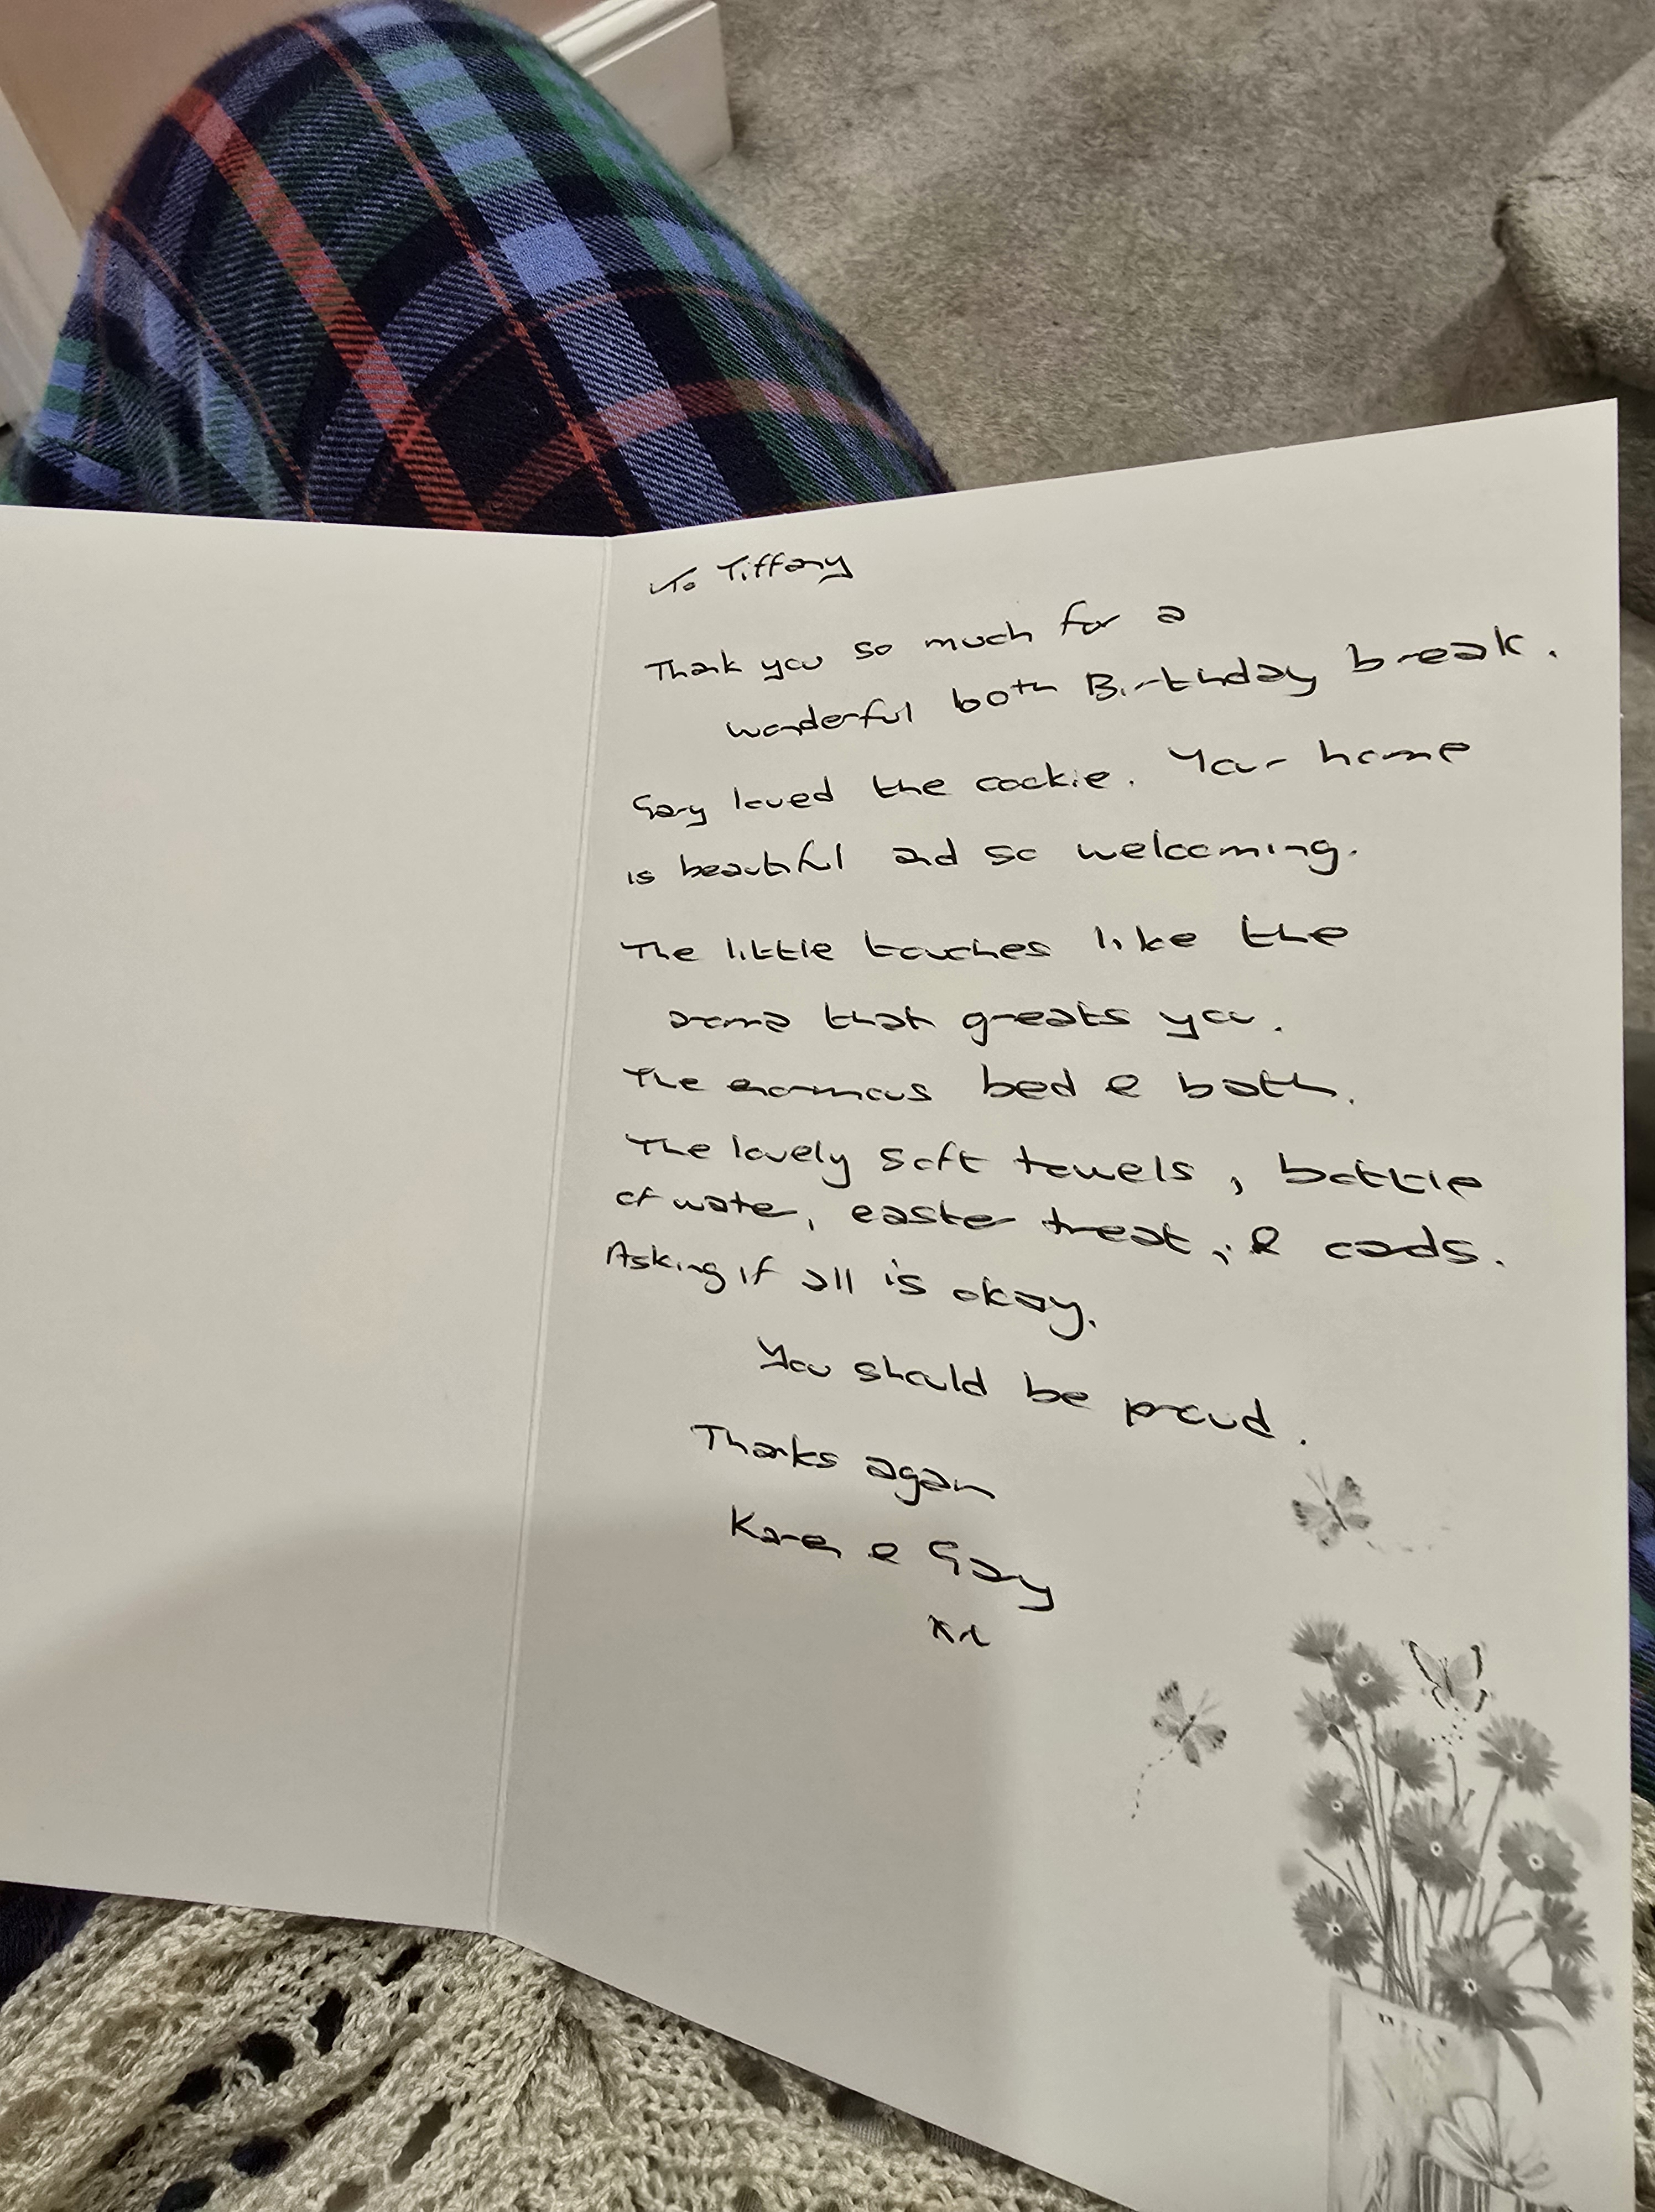 To Tiffany
Thank you so much for a
wonderful 60th Birthday break.
Gary loved the cookie. Your home
is beautiful and so welcoming.
The little touches like the
aroma that greats you.
The enormous bed & bath.
The lovely soft towels, bottle
of water, easter treat, & cards.
Asking if all is okay.
You should be proud.
Thanks again
Karen & Gary
xx